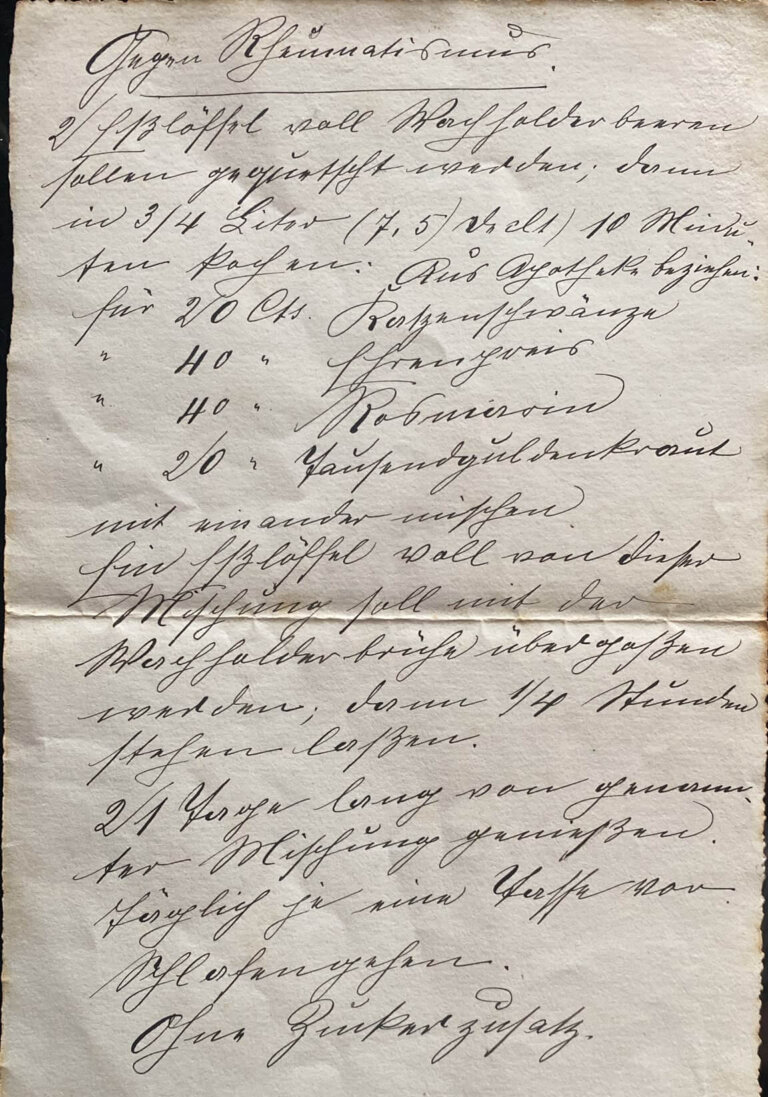 Gegen Rheumatismus.
2 Eßlöffel voll Wachholderbeeren
sollen gequetscht werden; dann
in 3/4 Liter (7,5 Declt) 10 Minu-
ten kochen: Aus Apotheke beziehen:
für 20 Cts. Katzenschwänze
" 40 " Ehrenpreis
" 40 " Rosmarin
" 20 " Tausendguldenkraut
mit einander mischen
Ein Eßlöffel voll von dieser
Mischung soll mit der
Wachholderbrühe übergoßen
werden; dann 1/4 Stunden
stehen laßen.
21 Tage lang von genann-
ter Mischung genießen.
Täglich je eine Tasse vor
Schlafengehen.
Ohne Zuckerzusatz.